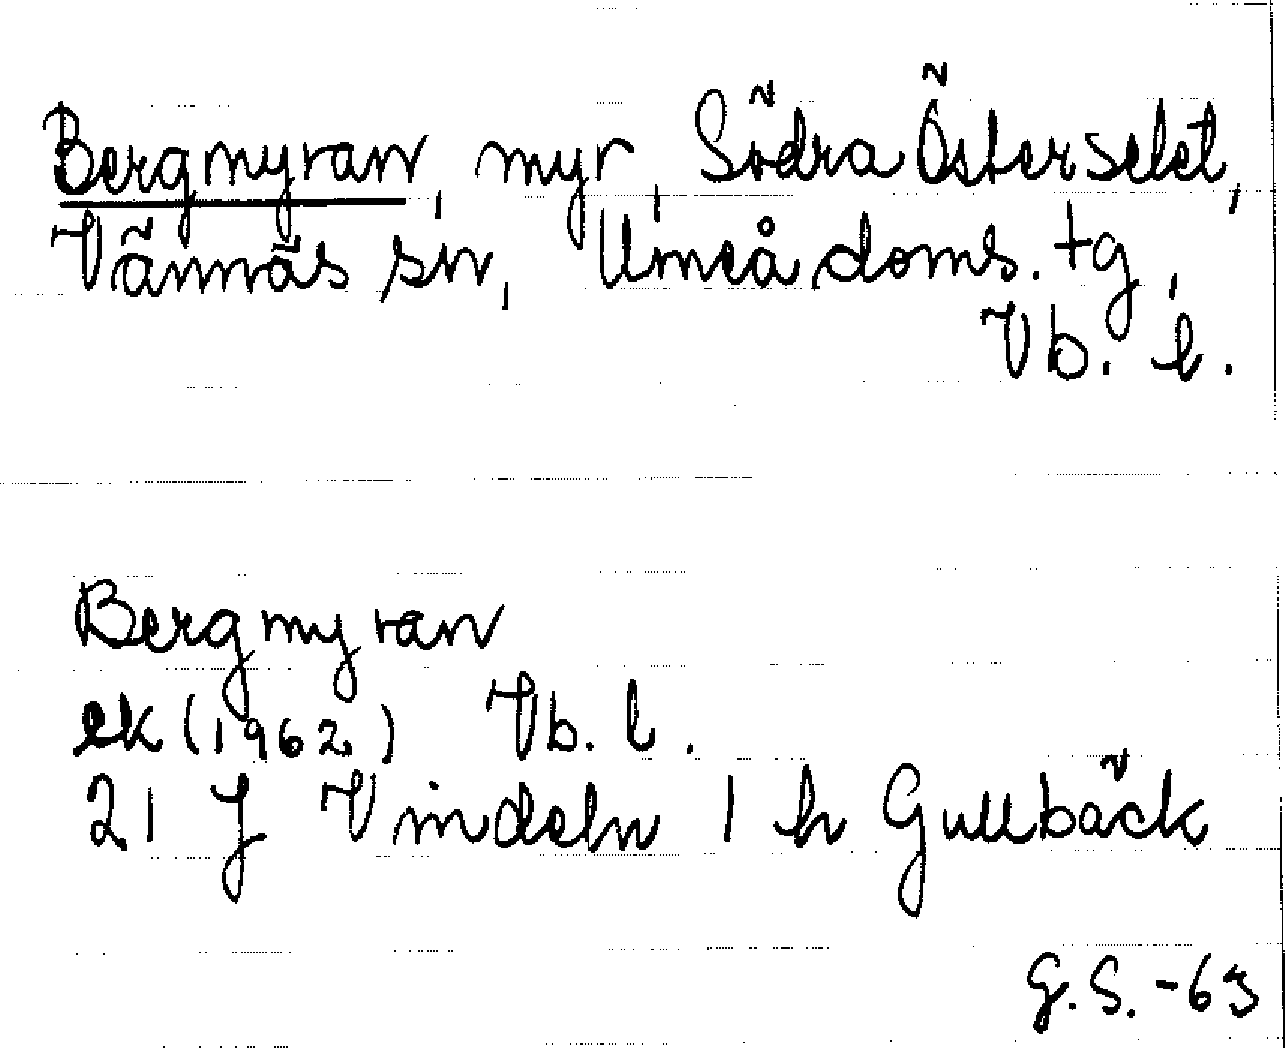 Bergmyran, myr, Södra Österselet,
Vännäs sn, Umeå doms. tg,
Vb. l.
Bergmyran
ek (1962) Vb. l.
21 J Vindeln 1 h Gullbäck
G.S. -63